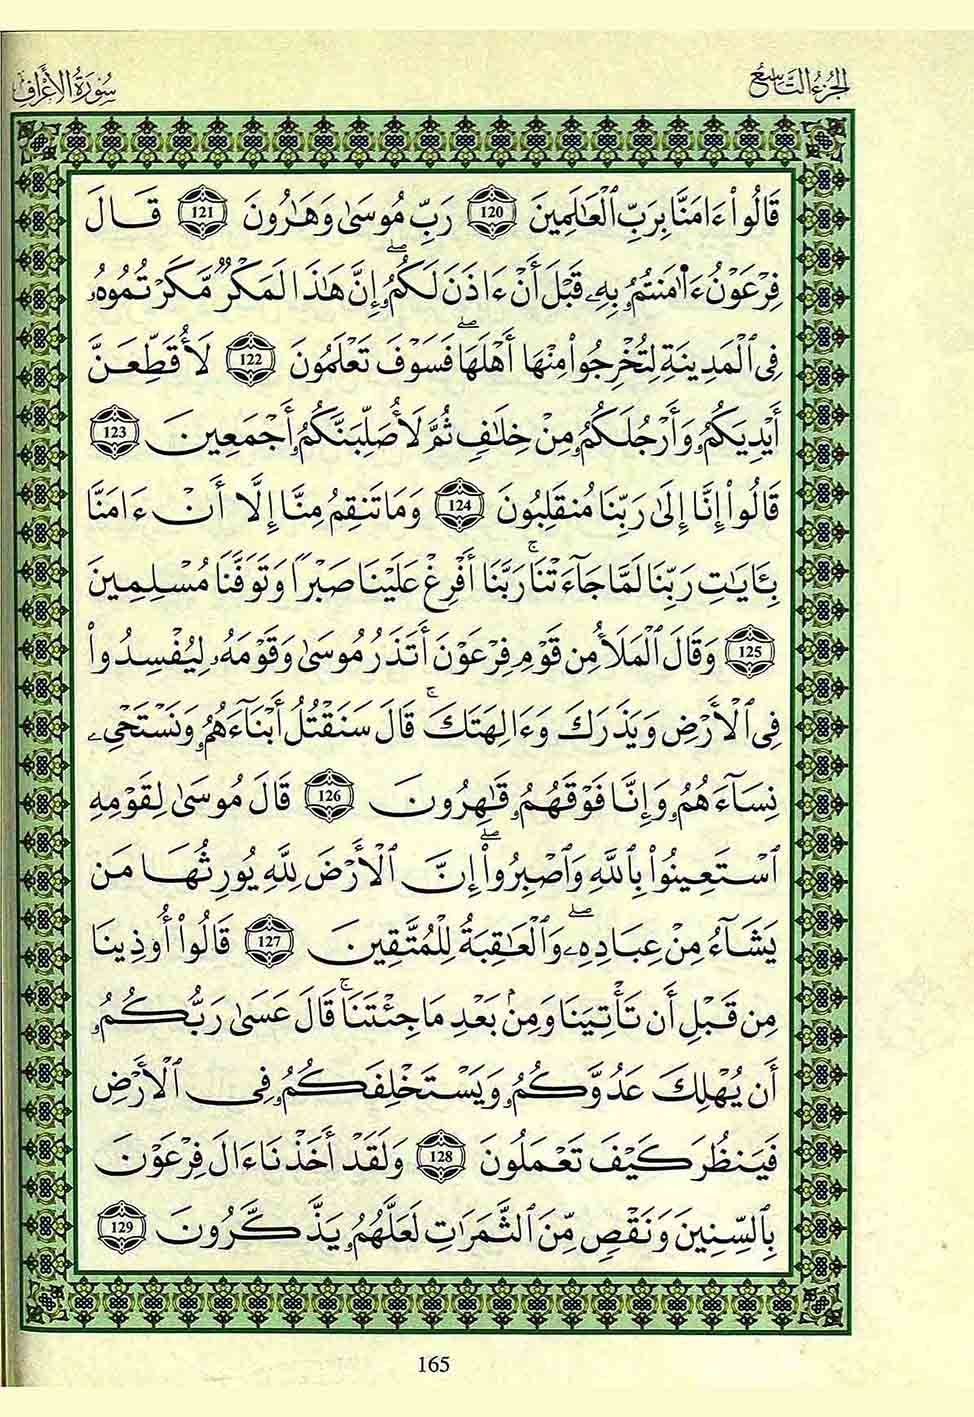 الجزء التاسع
سورة الأعراف
قَالُوا۟ ءَامَنَّا بِرَبِّ ٱلْعَٰلَمِينَ 120 رَبِّ مُوسَىٰ وَهَٰرُونَ 121 قَالَ
فِرْعَوْنُ ءَاٰمَنتُمُۥ بِهِۦ قَبْلَ أَنْ ءَاذَنَ لَكُمُۥۖ إِنَّ هَٰذَا لَمَكْرٌ مَّكَرْتُمُوهُۥ
فِى ٱلْمَدِينَةِ لِتُخْرِجُوا۟ مِنْهَا أَهْلَهَاۖ فَسَوْفَ تَعْلَمُونَ 122 لَأُقَطِّعَنَّ
أَيْدِيَكُمُۥ وَأَرْجُلَكُمُۥ مِنْ خِلَٰفٍ ثُمَّ لَأُصَلِّبَنَّكُمُۥ أَجْمَعِينَ 123
قَالُوا۟ إِنَّا إِلَىٰ رَبِّنَا مُنقَلِبُونَ 124 وَمَا تَنقِمُ مِنَّا إِلَّا أَنْ ءَامَنَّا
بِـَٔايَٰتِ رَبِّنَا لَمَّا جَآءَتْنَاۚ رَبَّنَا أَفْرِغْ عَلَيْنَا صَبْرًا وَتَوَفَّنَا مُسْلِمِينَ
125 وَقَالَ ٱلْمَلَأُ مِن قَوْمِ فِرْعَوْنَ أَتَذَرُ مُوسَىٰ وَقَوْمَهُۥ لِيُفْسِدُوا۟
فِى ٱلْأَرْضِ وَيَذَرَكَ وَءَالِهَتَكَۚ قَالَ سَنَقْتُلُ أَبْنَآءَهُمُۥ وَنَسْتَحْىِۦ
نِسَآءَهُمُۥ وَإِنَّا فَوْقَهُمُۥ قَٰهِرُونَ 126 قَالَ مُوسَىٰ لِقَوْمِهِ
ٱسْتَعِينُوا۟ بِٱللَّهِ وَٱصْبِرُوٓا۟ۖ إِنَّ ٱلْأَرْضَ لِلَّهِ يُورِثُهَا مَن
يَشَآءُ مِنْ عِبَادِهِۦۖ وَٱلْعَٰقِبَةُ لِلْمُتَّقِينَ 127 قَالُوا۟ أُوذِينَا
مِن قَبْلِ أَن تَأْتِيَنَا وَمِنۢ بَعْدِ مَا جِئْتَنَاۚ قَالَ عَسَىٰ رَبُّكُمُۥ
أَن يُهْلِكَ عَدُوَّكُمُۥ وَيَسْتَخْلِفَكُمُۥ فِى ٱلْأَرْضِ
فَيَنظُرَ كَيْفَ تَعْمَلُونَ 128 وَلَقَدْ أَخَذْنَا ءَالَ فِرْعَوْنَ
بِٱلسِّنِينَ وَنَقْصٍ مِّنَ ٱلثَّمَرَٰتِ لَعَلَّهُمُۥ يَذَّكَّرُونَ 129
165